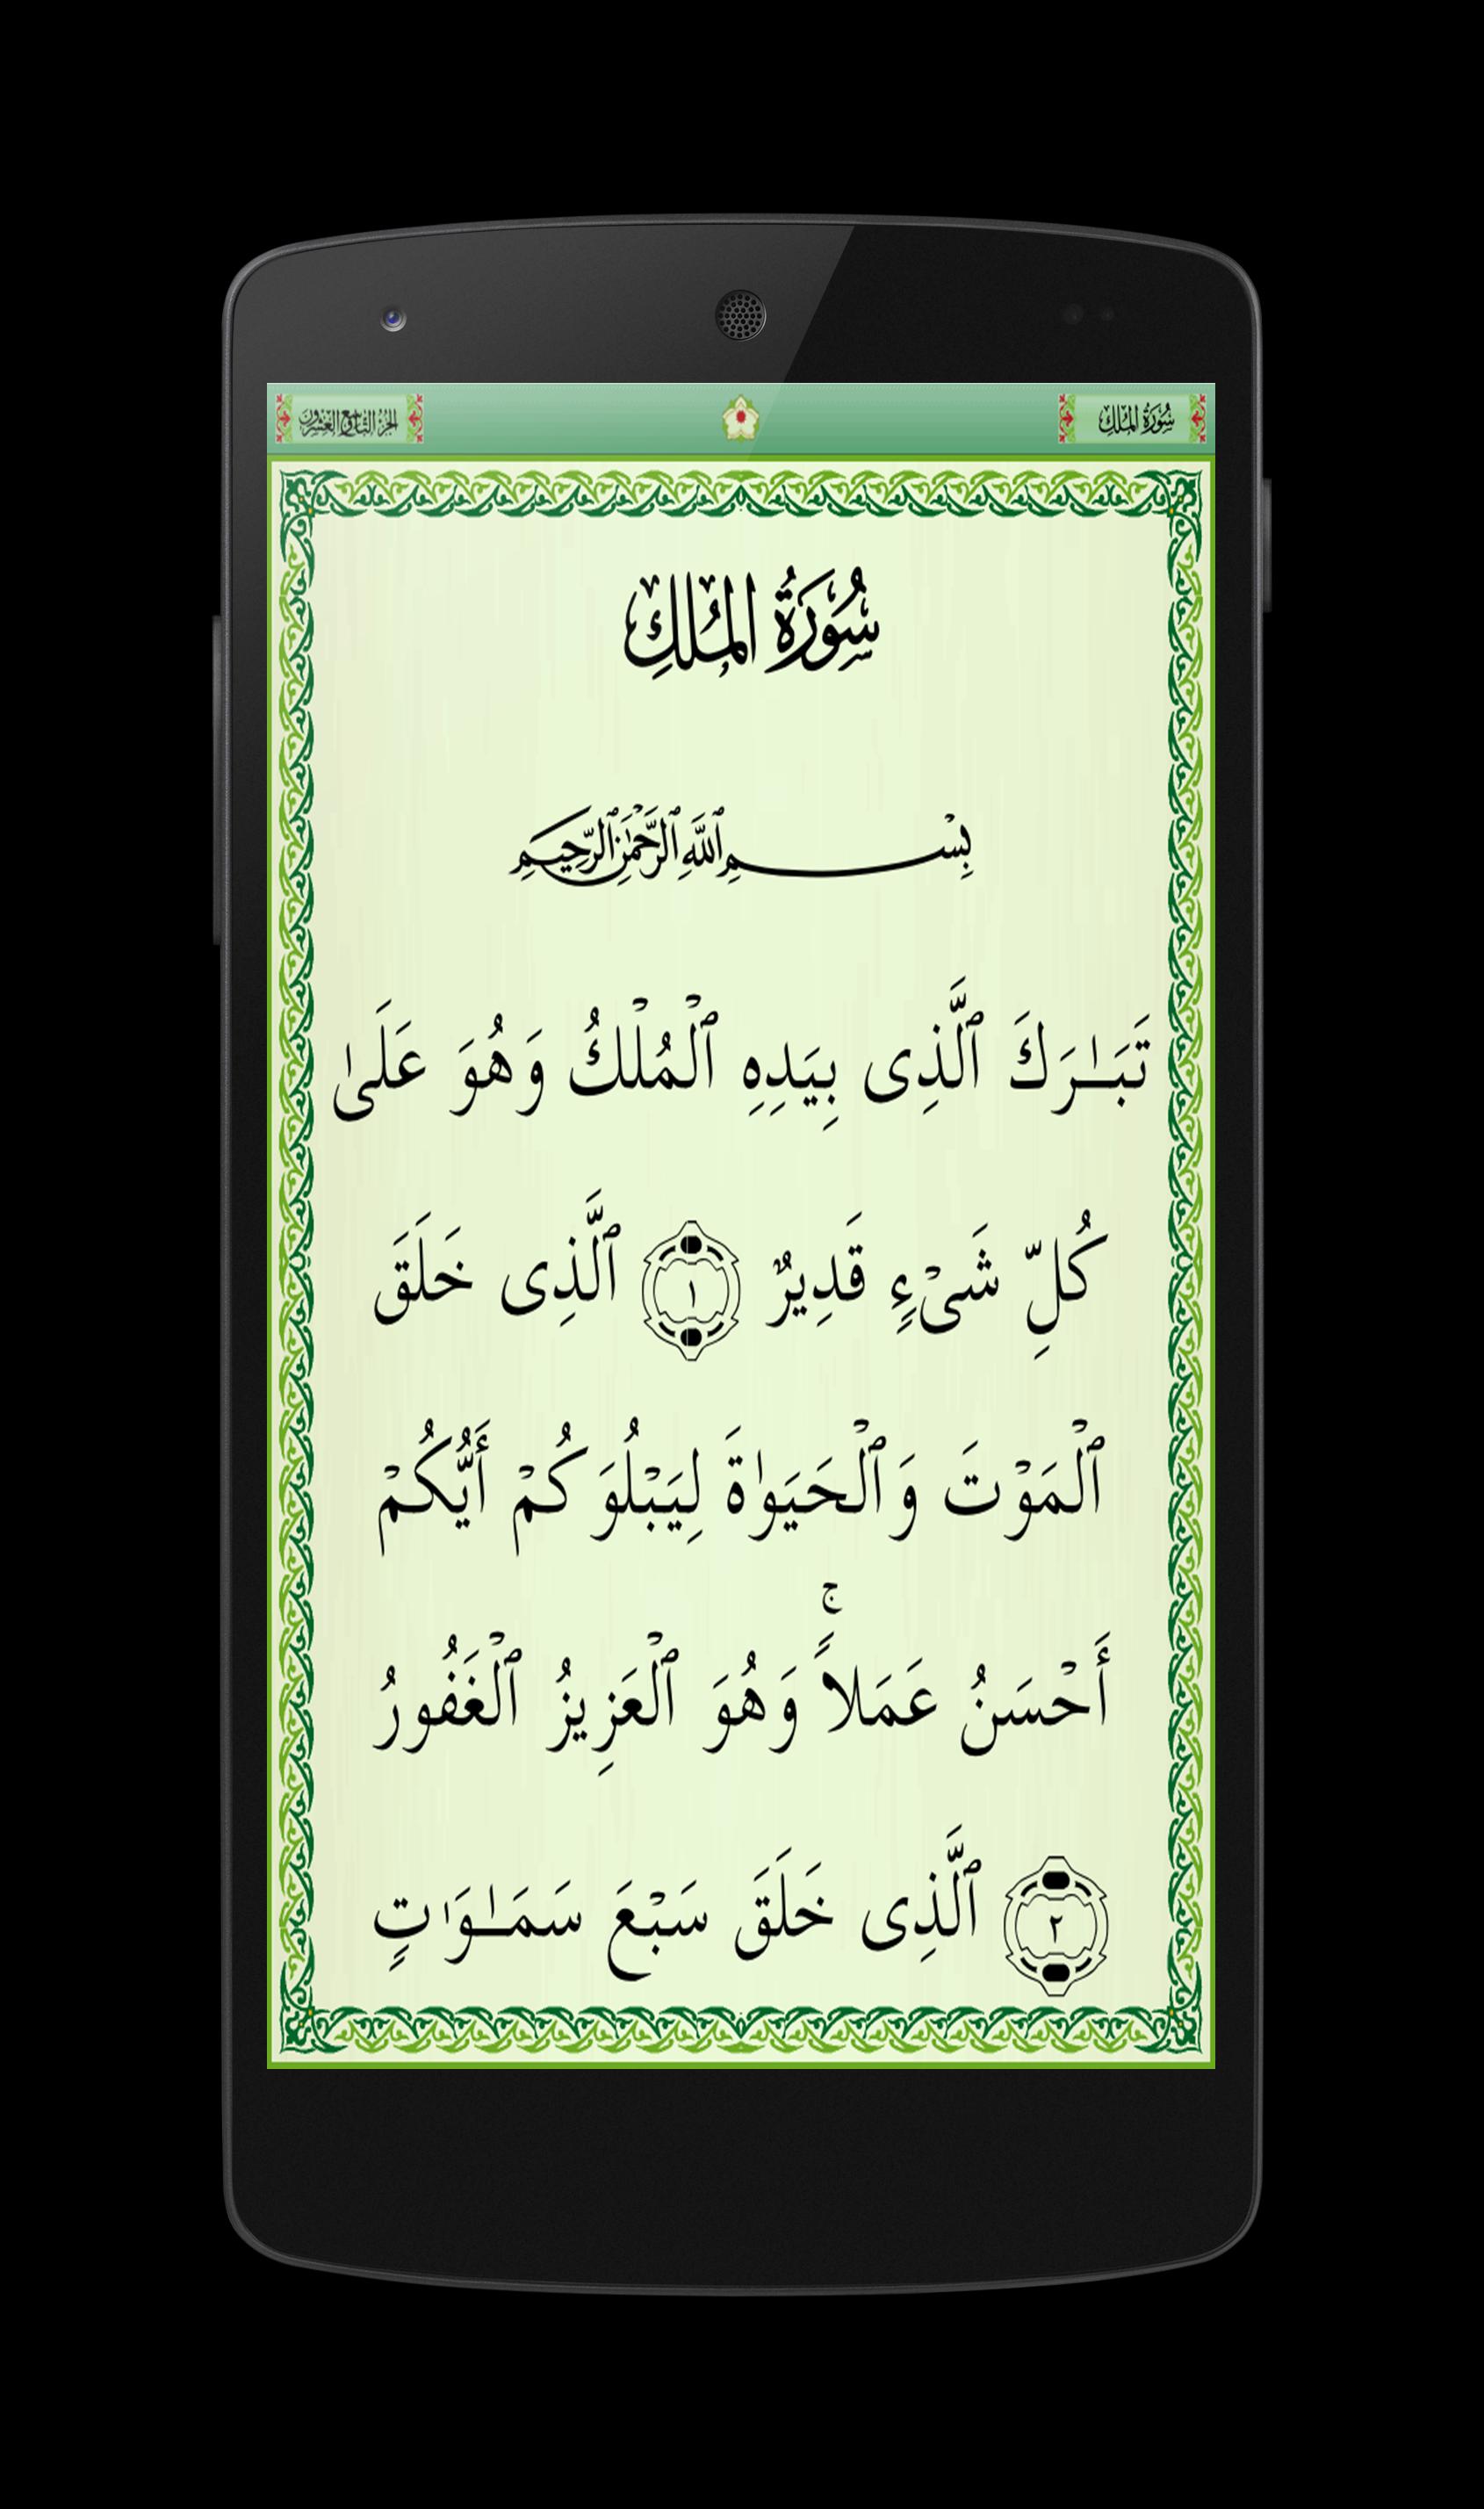 سُورَةُ المُلكِ
الجزء التاسع والعشرون
سُورَةُ المُلكِ
بِسْمِ ٱللَّهِ ٱلرَّحْمَٰنِ ٱلرَّحِيمِ
تَبَـٰرَكَ ٱلَّذِى بِيَدِهِ ٱلْمُلْكُ وَهُوَ عَلَىٰ
كُلِّ شَىْءٍ قَدِيرٌ ١ ٱلَّذِى خَلَقَ
ٱلْمَوْتَ وَٱلْحَيَوٰةَ لِيَبْلُوَكُمْ أَيُّكُمْ
أَحْسَنُ عَمَلاً ۚ وَهُوَ ٱلْعَزِيزُ ٱلْغَفُورُ
٢ ٱلَّذِى خَلَقَ سَبْعَ سَمَـٰوَٰتٍ